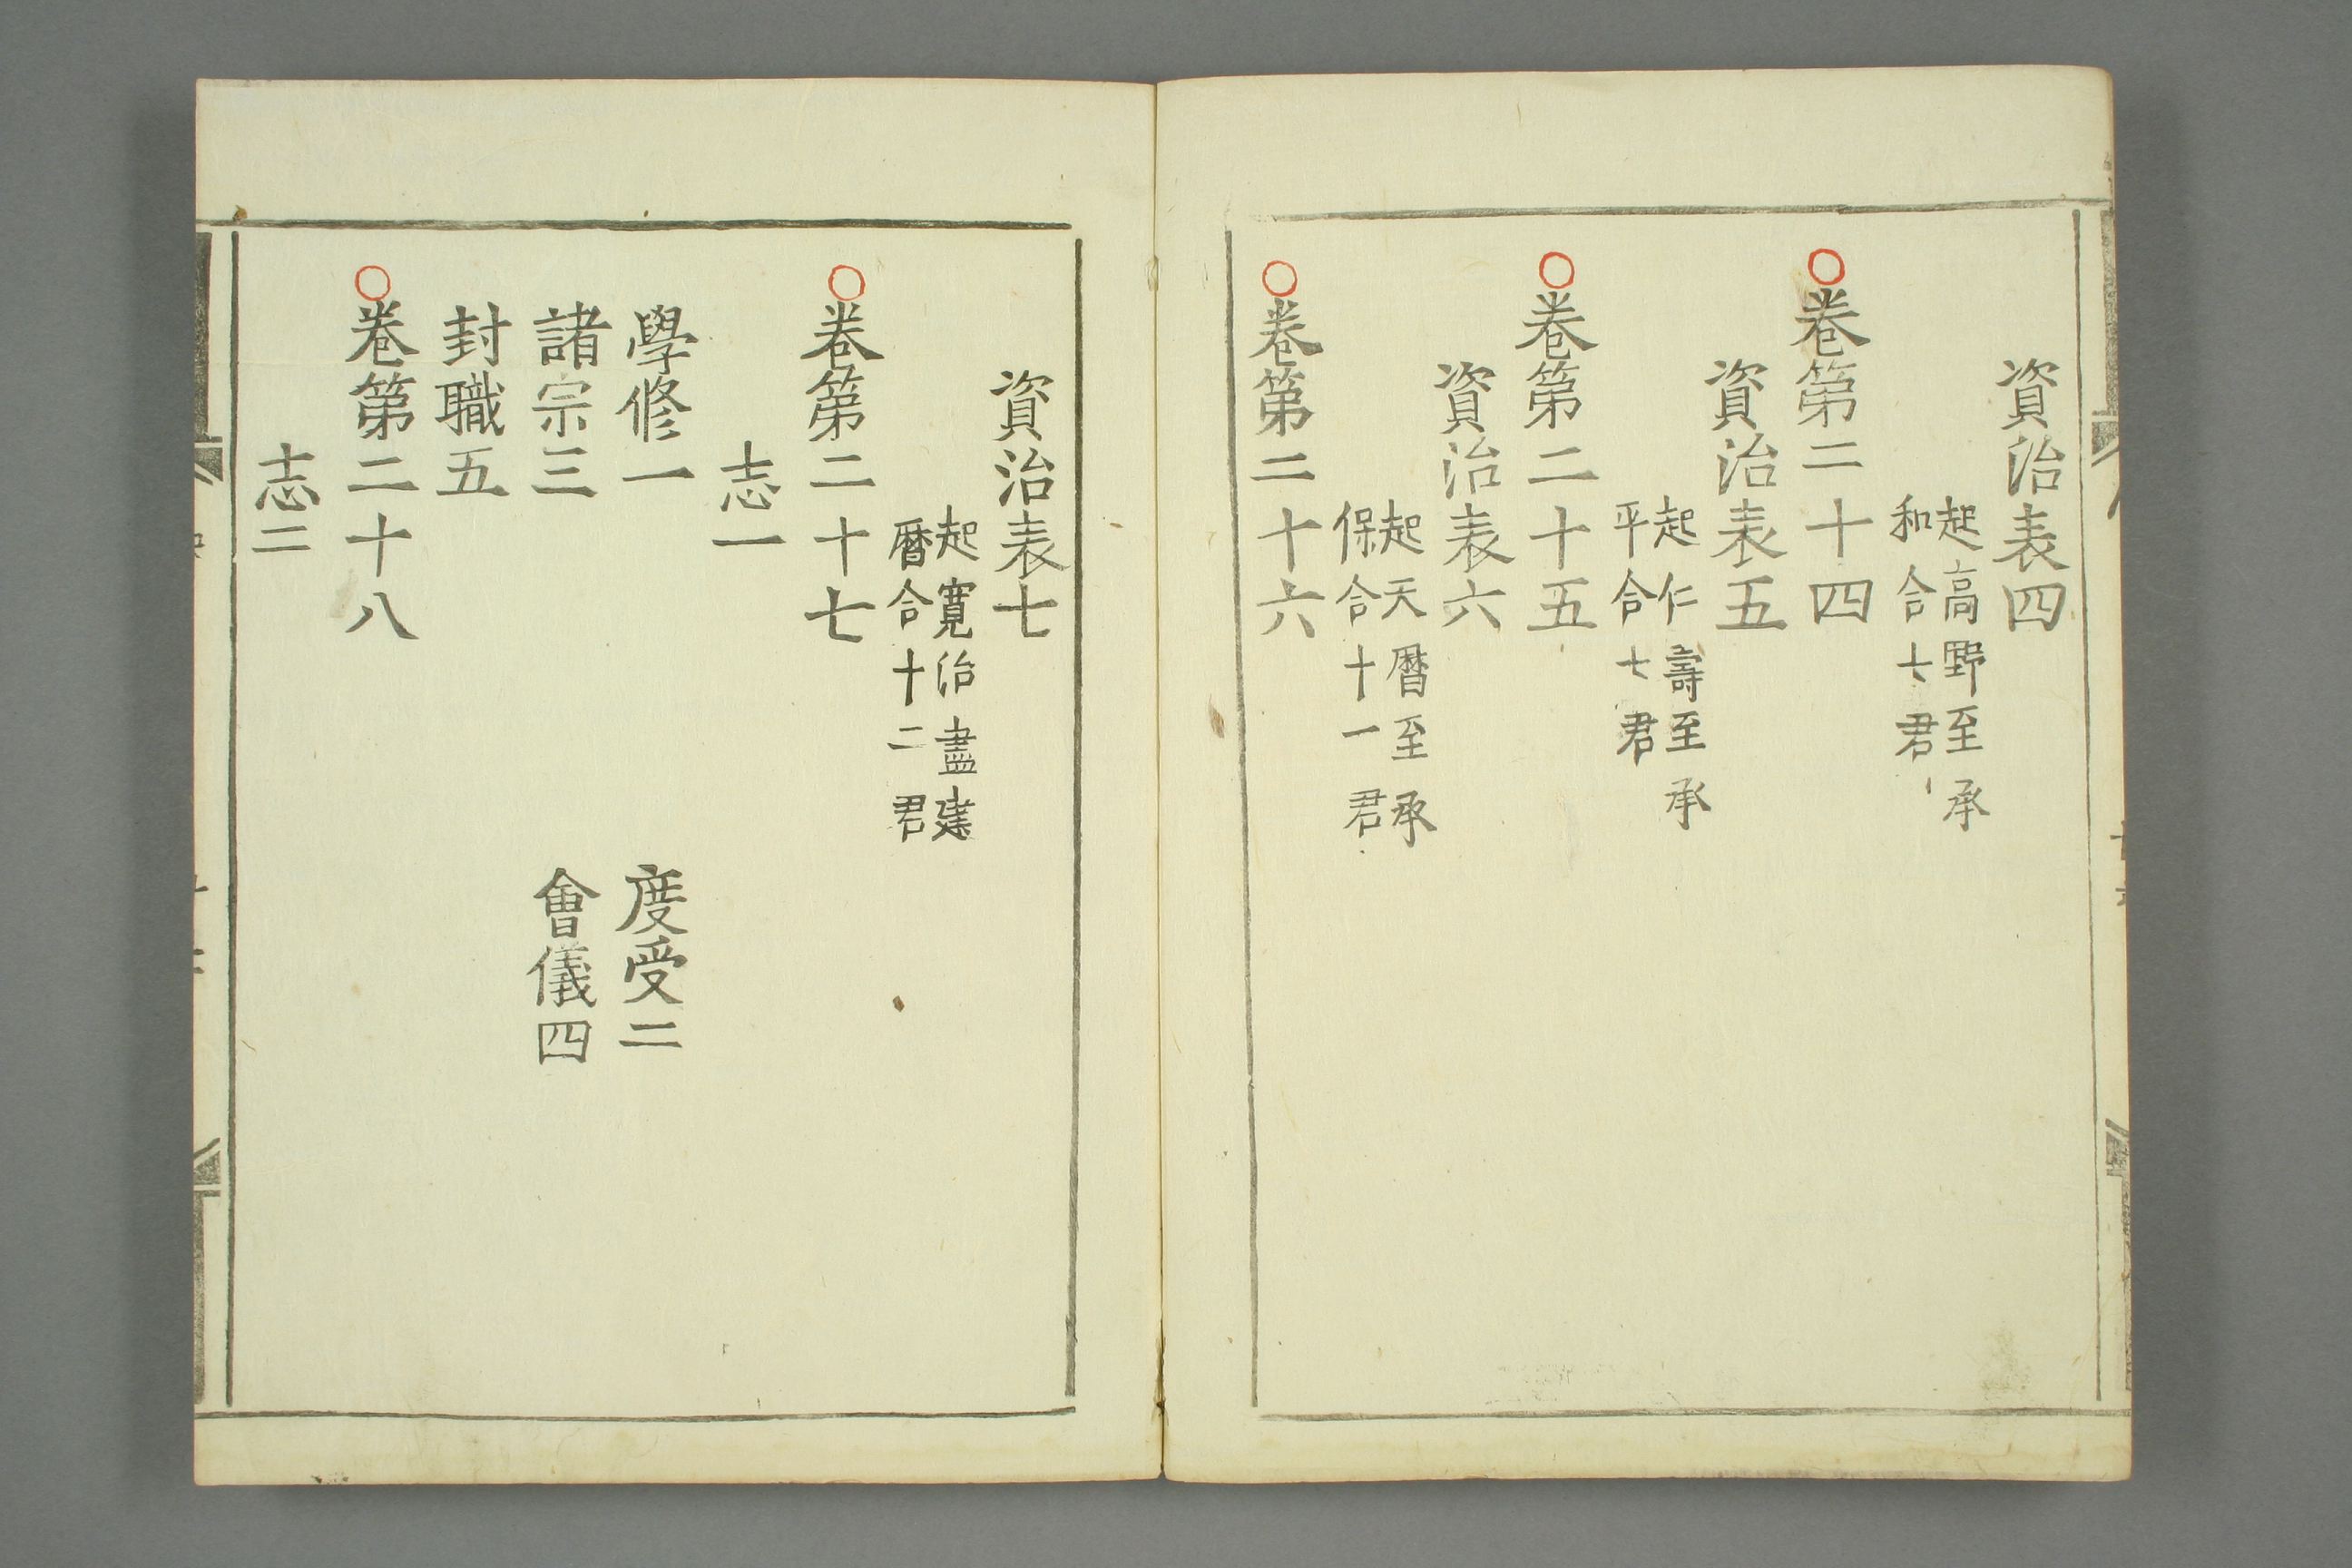 資治表四
起高野至承
和合七君
○卷第二十四
資治表五
起仁壽至承
平合七君
○卷第二十五
資治表六
起天曆至承
保合十一君
○卷第二十六
資治表七
起寬治盡建
曆合十二君
○卷第二十七
志一
學修一 度受二
諸宗三 會儀四
封職五
○卷第二十八
志二